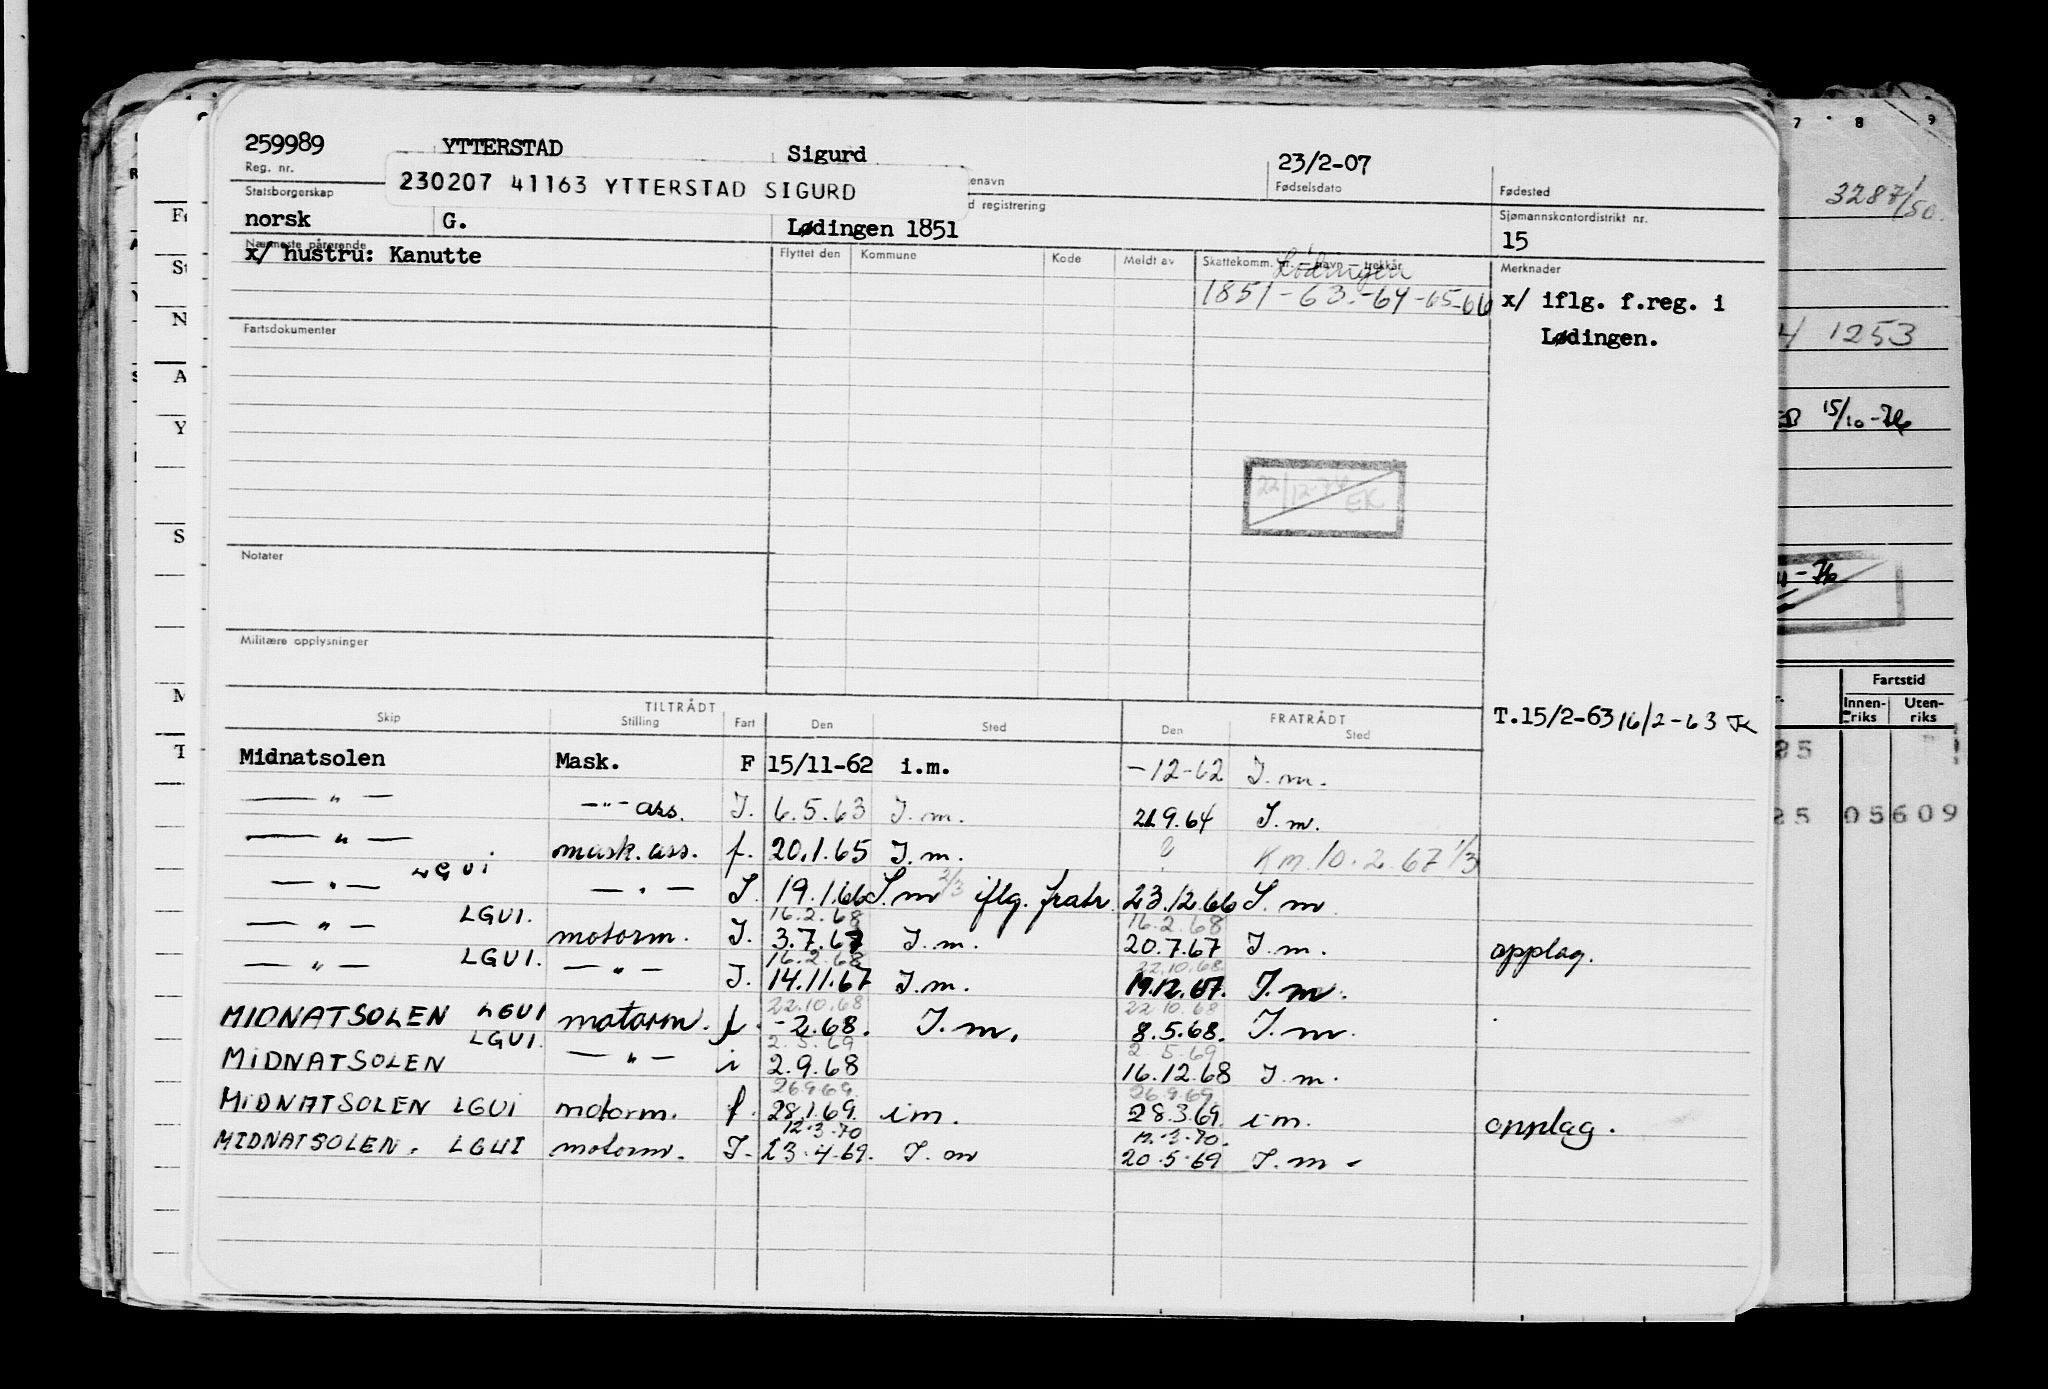 259989 YTTERSTAD Sigurd 23/2-07
Reg. nr. enavn Fødselsdato Fødested
230207 41163 YTTERSTAD SIGURD
Statsborgerskap d registrering Sjømannskontordistrikt nr.
norsk G. Lødingen 1851 15
Nærmeste pårørende Flyttet den Kommune Kode Meldt av Skattekomm. nr. – navn – trekkår Merknader
x/ hustru: Kanutte Lødingen
1851-63.-64-65-66 x/ iflg. f.reg. i
Lødingen.
Fartsdokumenter
22/12-74 EK
Notater
Militære opplysninger
TILTRÅDT FRATRÅDT
Skip Stilling Fart Den Sted Den Sted
T.15/2-63 16/2-63
Midnatsolen Mask. F 15/11-62 i.m. -12-62 I.m.
— " — —"— ass. I. 6.5.63 I.m. 21.9.64 I.m.
— " — mask. ass. f. 20.1.65 I.m. Km. 10.2.67 1/3
LGUI
— " — — " — I 19.1.66 I.m 2/3 iflg. fratr. 23.12.66 I.m
LGUI. 16.2.68 16.2.68
— " — motorm. I. 3.7.67 I.m. 20.7.67 I.m. opplag.
LGUI. 16.2.68 22.10.68.
— " — — " — I. 14.11.67 I.m. 19.12.67. I.m.
22.10.68 22.10.68
MIDNATSOLEN LGUI motorm. f. -2.68. I.m. 8.5.68. I.m.
LGUI. 2.5.69 2.5.69
MIDNATSOLEN — " — i 2.9.68 16.12.68 I.m.
26.9.69. 26.9.69.
MIDNATSOLEN LGUI motorm. f. 28.1.69. im. 28.3.69. im. opplag.
12.3.70 12.3.70.
MIDNATSOLEN. LGUI motorm. I. 23.4.69. I.m 20.5.69 I.m-
7 8 9
3287/50.
1253
15/10-76
Fartstid
Innenriks Utenriks
25
25 05609